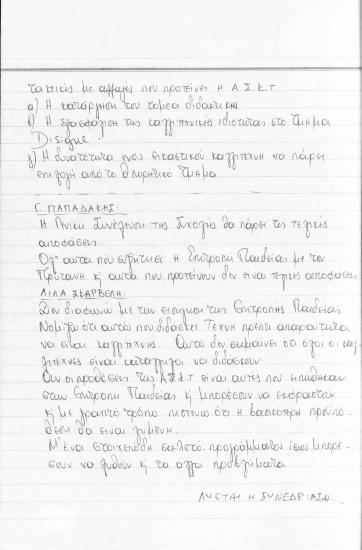 τακτικές με αλλαγές που προτείνει η Α.Σ.Κ.Τ.
α) Η κατάργηση του τομέα διδακτικής
β) Η εξασφάλιση της καλλιτεχνικής ιδιότητας στο Τμήμα
Disigne.
γ) Η δυνατότητα ενός εικαστικού καλλιτέχνη να πάρει
επιλογή από το θεωρητικό Τμήμα
Γ. ΠΑΠΑΔΑΚΗΣ:
Η Γενική Συνέλευση της Σχολής θα πάρει τις τελικές
αποφάσεις.
Όλα αυτά που συζήτησε η Επιτροπή Παιδείας με τον
Πρύτανη κ' αυτά που προτείνουν δεν είναι τελικές αποφάσεις.
ΛΙΛΑ ΣΚΑΡΒΕΛΗ:
Δεν διαφωνώ με την εισήγηση της Επιτροπής Παιδείας
Νομίζω ότι αυτό που διδάσκει Τέχνη πρέπει απαραίτητα
να είναι καλλιτέχνης. Αυτό δεν σημαίνει ότι όλοι οι καλ-
λιτέχνες είναι κατάλληλοι να διδάσκουν
Αν οι προθέσεις της Α.Σ.Κ.Τ είναι αυτές που ειπώθηκαν
στην Επιτροπή Παιδείας κ' μπορέσουν να εκφραστούν
κ' με γραπτό τρόπο πιστεύω ότι η βασικότερη προϋπό-
θεση θα είναι λυμένη.
Μ' ένα στοιχειώδη σκελετό προγράμματος ίσως μπορέ-
σουν να λυθούν κ' τα άλλα προβλήματα.
ΛΥΕΤΑΙ Η ΣΥΝΕΔΡΙΑΣΗ